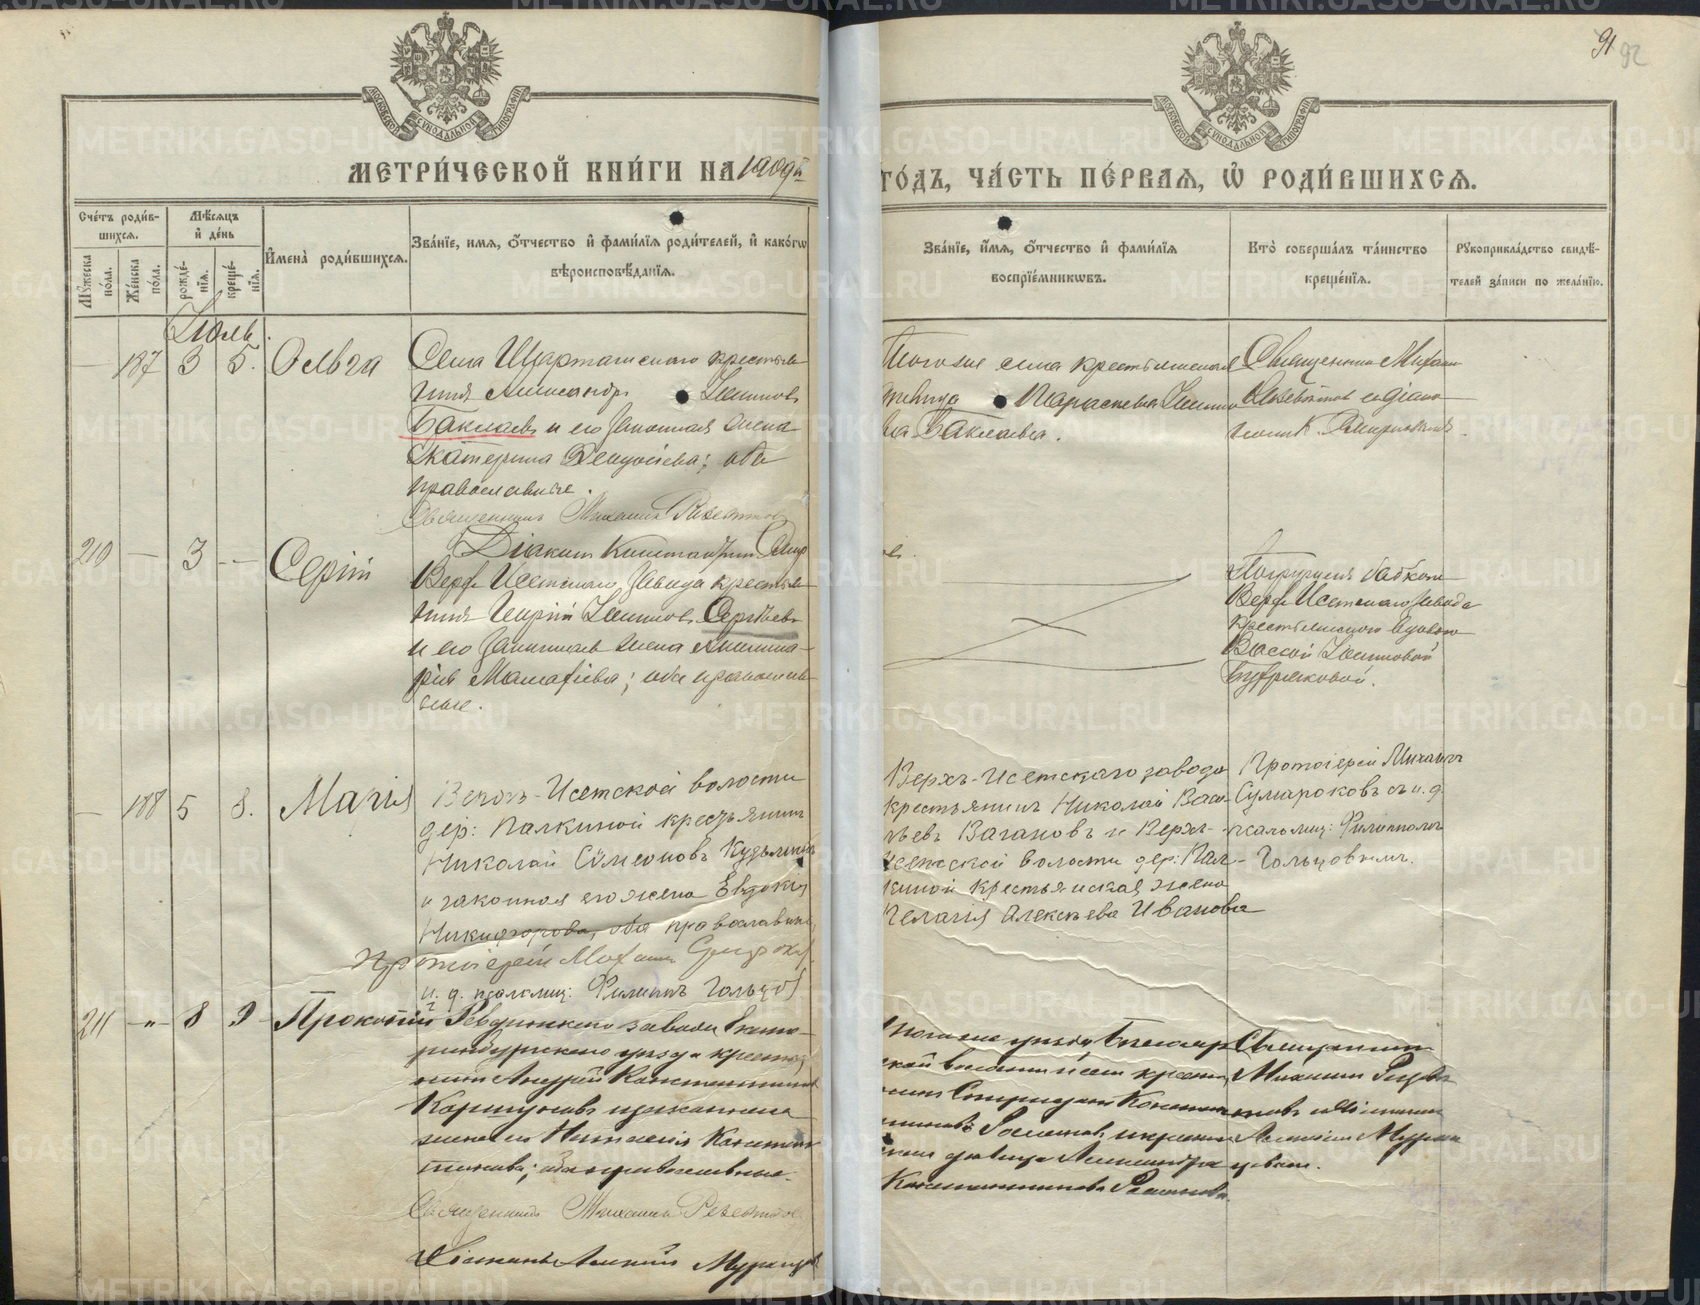 91 92
МЕТРИ́ЧЕСКОЙ КНИ́ГИ НА 1909й
ГО́ДЪ, ЧА́СТЬ ПЕ́РВАЯ, Ѡ РОДИ́ВШИХСЯ.
Сче́тъ роди́в-
шихся.
Му́жеска по́ла.
Же́нска по́ла.
Мѣ́сяцъ
и де́нь
рожде́-
нїя.
креще́-
нїя.
Имена̀ роди́вшихся.
Зва́нїе, имя, о́тчество и фами́лїя роди́телей, и како́гѡ
вѣроисповѣ́данїя.
Зва́нїе, и́мя, о́тчество и фами́лїя
воспрїе́мникѡвъ.
Кто̀ соверша́лъ та́инство
креще́нїя.
Рукоприкла́дство свидѣ́-
телей за́писи по жела́нїю.
Іюль.
— 187 3 5. Ольга
Села Шарташскаго крестья-
нинъ Александръ Іоанновъ
Баклаевъ и его законная жена
Екатерина ; оба
православные.
Священникъ Михаилъ
Тогоже села крестьянская
девица Параскева Іоанно-
ва Баклаева.
Священникъ Михаилъ
и діако-

210 — 3 — Сергій
Діаконъ Константинъ
Верхъ Исетскаго завода крестья-
нинъ Георгій Іоанновъ Сергѣевъ
и его законная жена
; оба православ-
ные.
Погруженъ бабкою
Верхъ Исетскаго завода
крестьянскою вдовою
Вассой Іоанновой
— 188 5 8. Марія
Верхъ-Исетской волости
дер: Палкиной крестьянинъ
Николай Сѵмеоновъ Кузьминъ
и законная его жена Евдокія
Никифорова, оба православные
Протоіерей Михаилъ Сумароковъ
и. д. псаломщ: Филиппъ Гольцовъ
Верхъ-Исетскаго завода
крестьянинъ Николай Васи-
льевъ Вагановъ и Верхъ-
Исетской волости дер: Пал-
киной крестьянская жена
Пелагія Алексѣева Иванова
Протоіерей Михаилъ
Сумароковъ съ и. д.
псаломщ: Филиппомъ
Гольцовымъ.
211 —„— 8 9 Прокопій
Ревдинскаго завода Екате-
ринбургскаго уѣзда крестья-
нинъ Андрей Константиновъ
Коршуновъ и законная
жена его Наталія Констан-
тинова; оба православные.
Священникъ Михаилъ
Діаконъ Алексій
Тогоже уѣзда
волости крестья-
нинъ Спиридонъ Констан-
тиновъ
дѣвица Александра
Константинова
Священникъ
Михаилъ